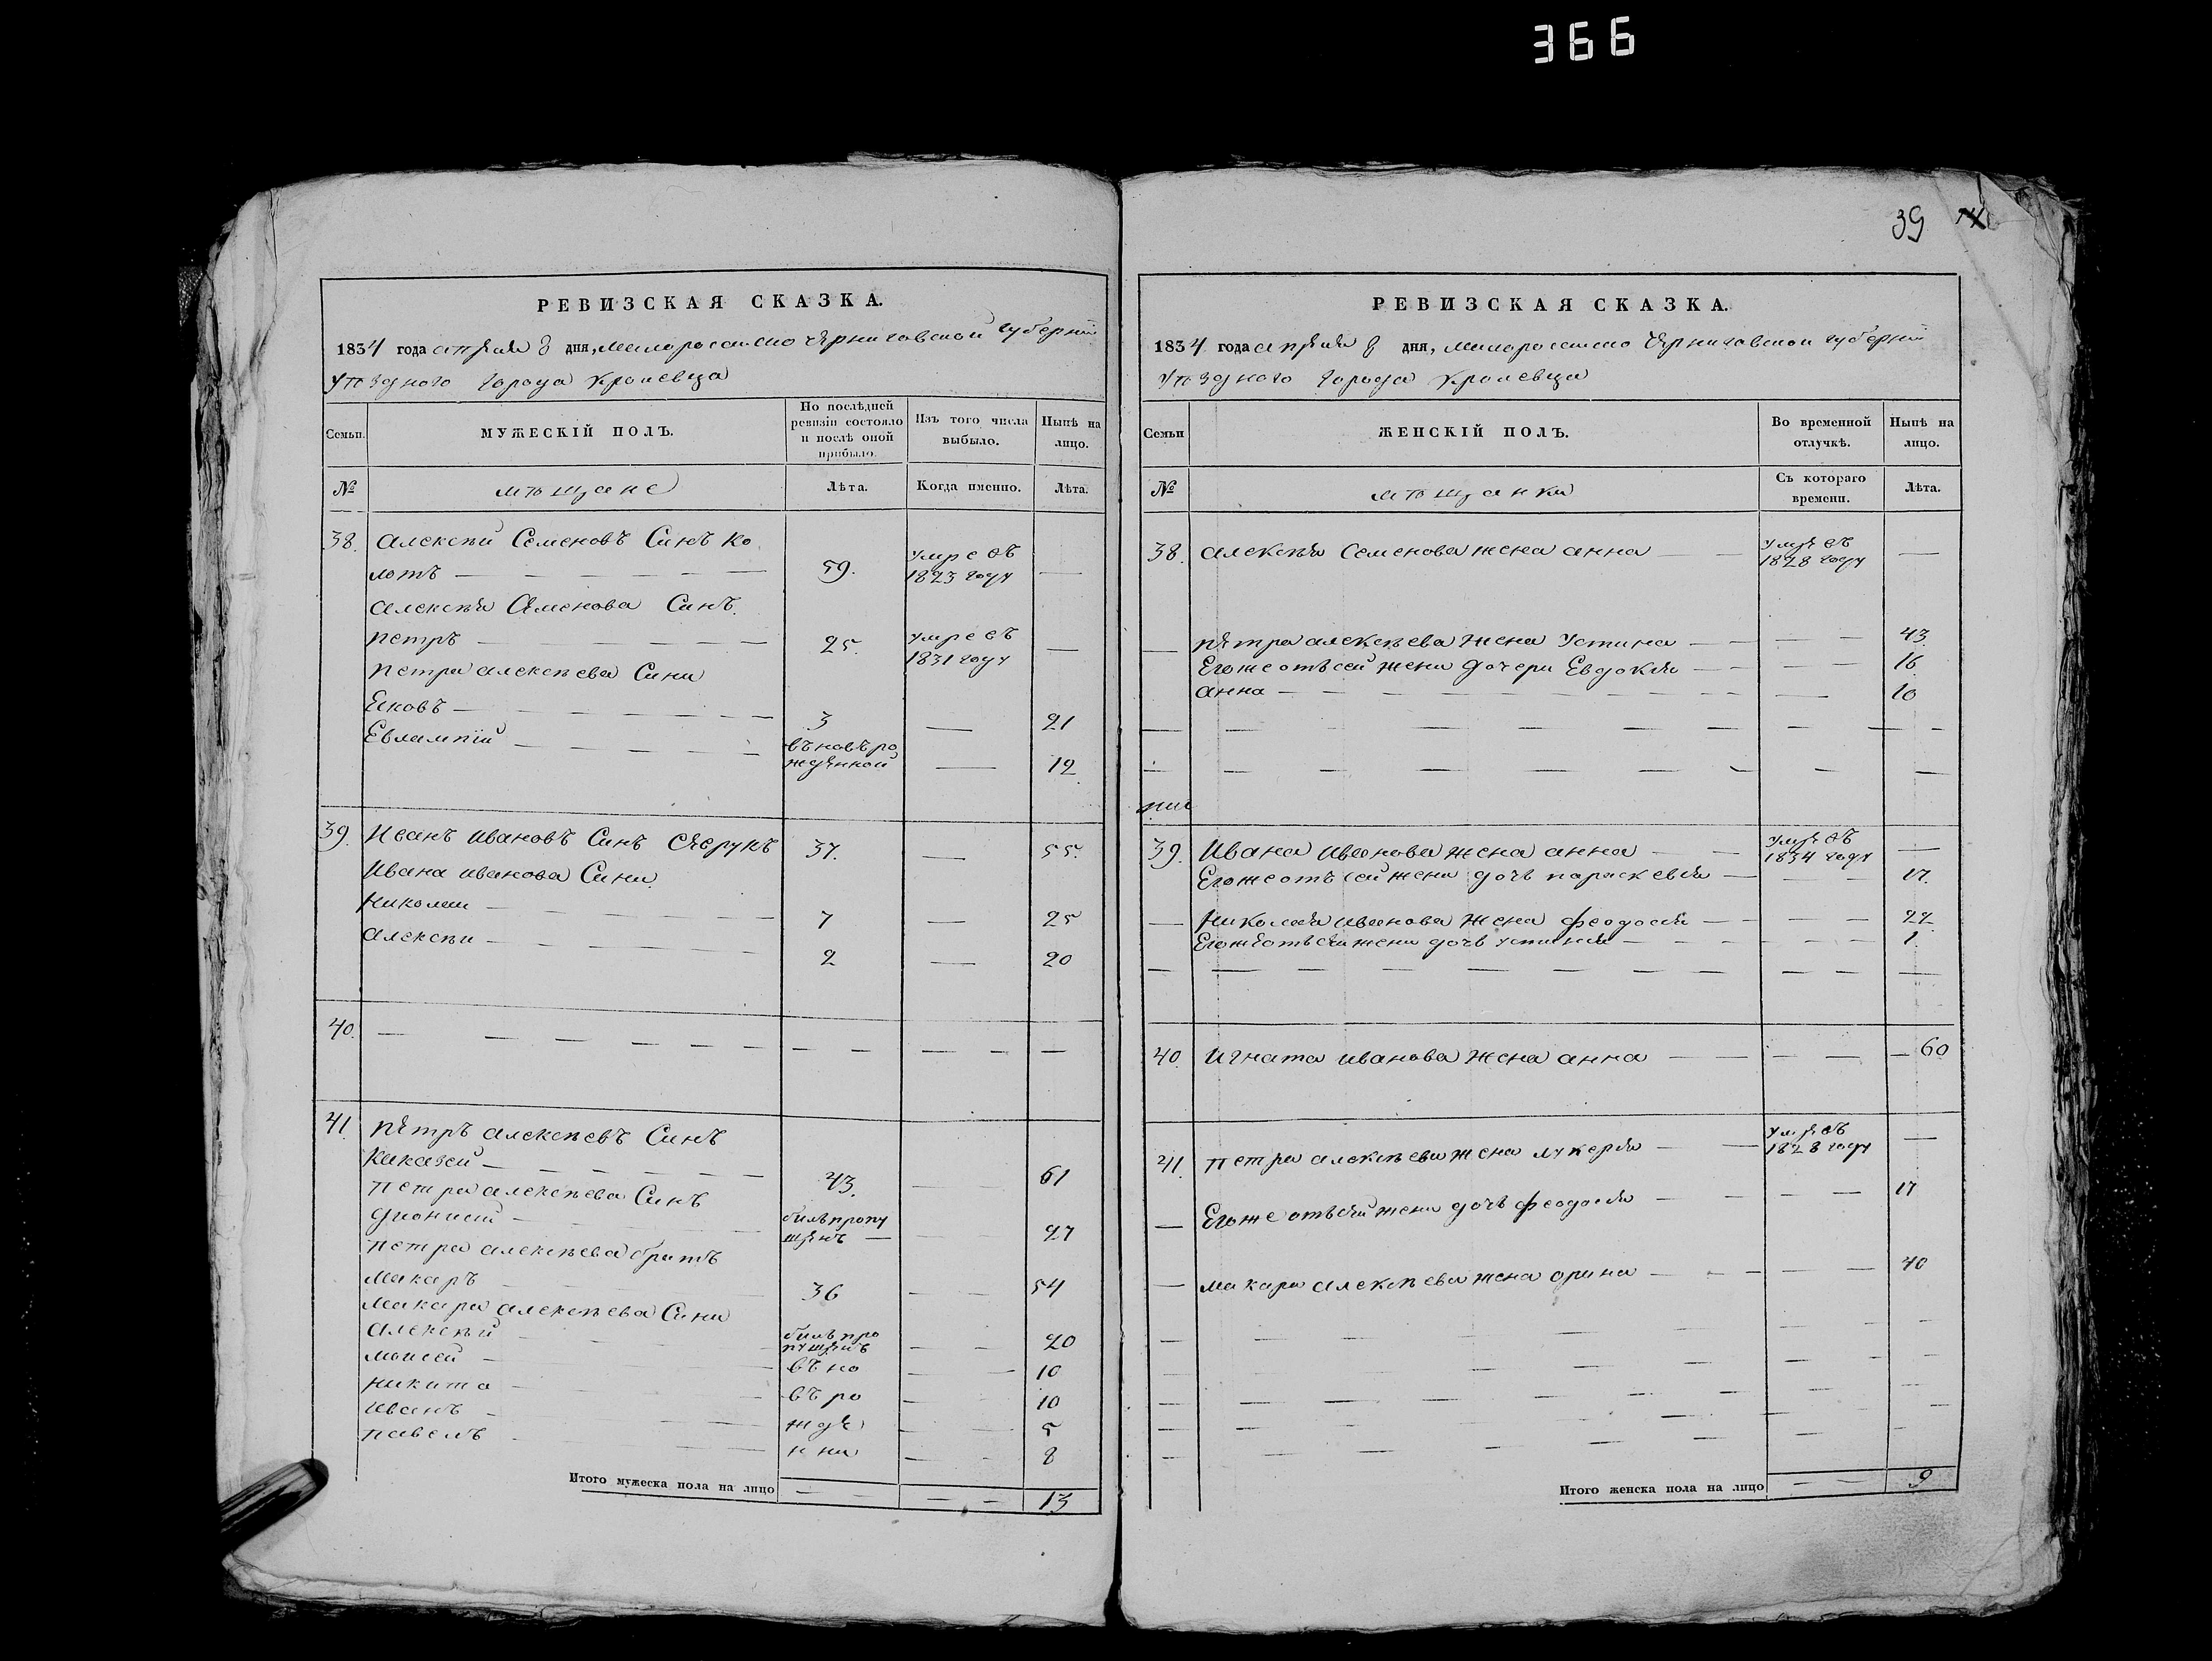 366
39
РЕВИЗСКАЯ СКАЗКА.
1834 года апреля 8 дня, малоросийско Черниговской губернии
уѣздного города Кролевца
Семьи.
МУЖЕСКІЙ ПОЛЪ.
По послѣдней ревизіи состояло и послѣ оной прибыло.
Изъ того числа выбыло.
Нынѣ на лицо.
№
мѣщане
Лѣта.
Когда именно.
Лѣта.
38. Алексѣй Семеновъ Синъ Ко
лотъ — 59. умре въ 1823 году —
Алексѣя Семенова Синъ
Петръ — 25. умре въ 1831 году —
Петра Алексѣева Сини
Яковъ — 3 — 21
Евлампій — въновъ рожденной — 12
39. Иванъ Ивановъ Синъ 37. — 55.
Ивана Иванова Сини
Николай — 7 — 25
Алексѣи — 2 — 20
40. —
41. Петръ Алексѣевъ Синъ
— 43. — 61
Петра Алексѣева Синъ
Дионисий — билъ пропущенъ — 27
Петра Алексѣева братъ
Макаръ — 36 — 54
Макара Алексѣева Сини
Алексѣй — билъ пропущенъ — 20
Моисей — въ но — 10
Никита — въ ро — 10
Иванъ — жде — 5
Павелъ — нни — 8
Итого мужеска пола на лицо — — 13
РЕВИЗСКАЯ СКАЗКА.
1834 года апреля 8 дня, малоросийско Черниговской губернии
уѣздного города Кролевца
Семьи
ЖЕНСКІЙ ПОЛЪ.
Во временной отлучкѣ.
Нынѣ на лицо.
№
мѣщанки
Съ котораго времени.
Лѣта.
38. Алексѣя Семенова жена Анна — умре въ 1828 году —
— Петра Алексѣева жена Устина — 43
Егоже отъ сей жени дочери Евдокия — 16
Анна — 10
39. Ивана Иванова жена Анна — умре въ 1834 году —
Егоже отъ сей жени дочъ Параскевия — 17.
— Николая Иванова жена Феодосия — 22
Егоже отъ сей жени дочъ Устиния — 1.
40. Игната Иванова жена Анна — 60
41. Петра Алексѣева жена Лукерия — умре въ 1828 году —
— Егоже отъ сей жени дочъ Феодосия — 17
— Макара Алексѣева жена Орина — 40
Итого женска пола на лицо — — 9